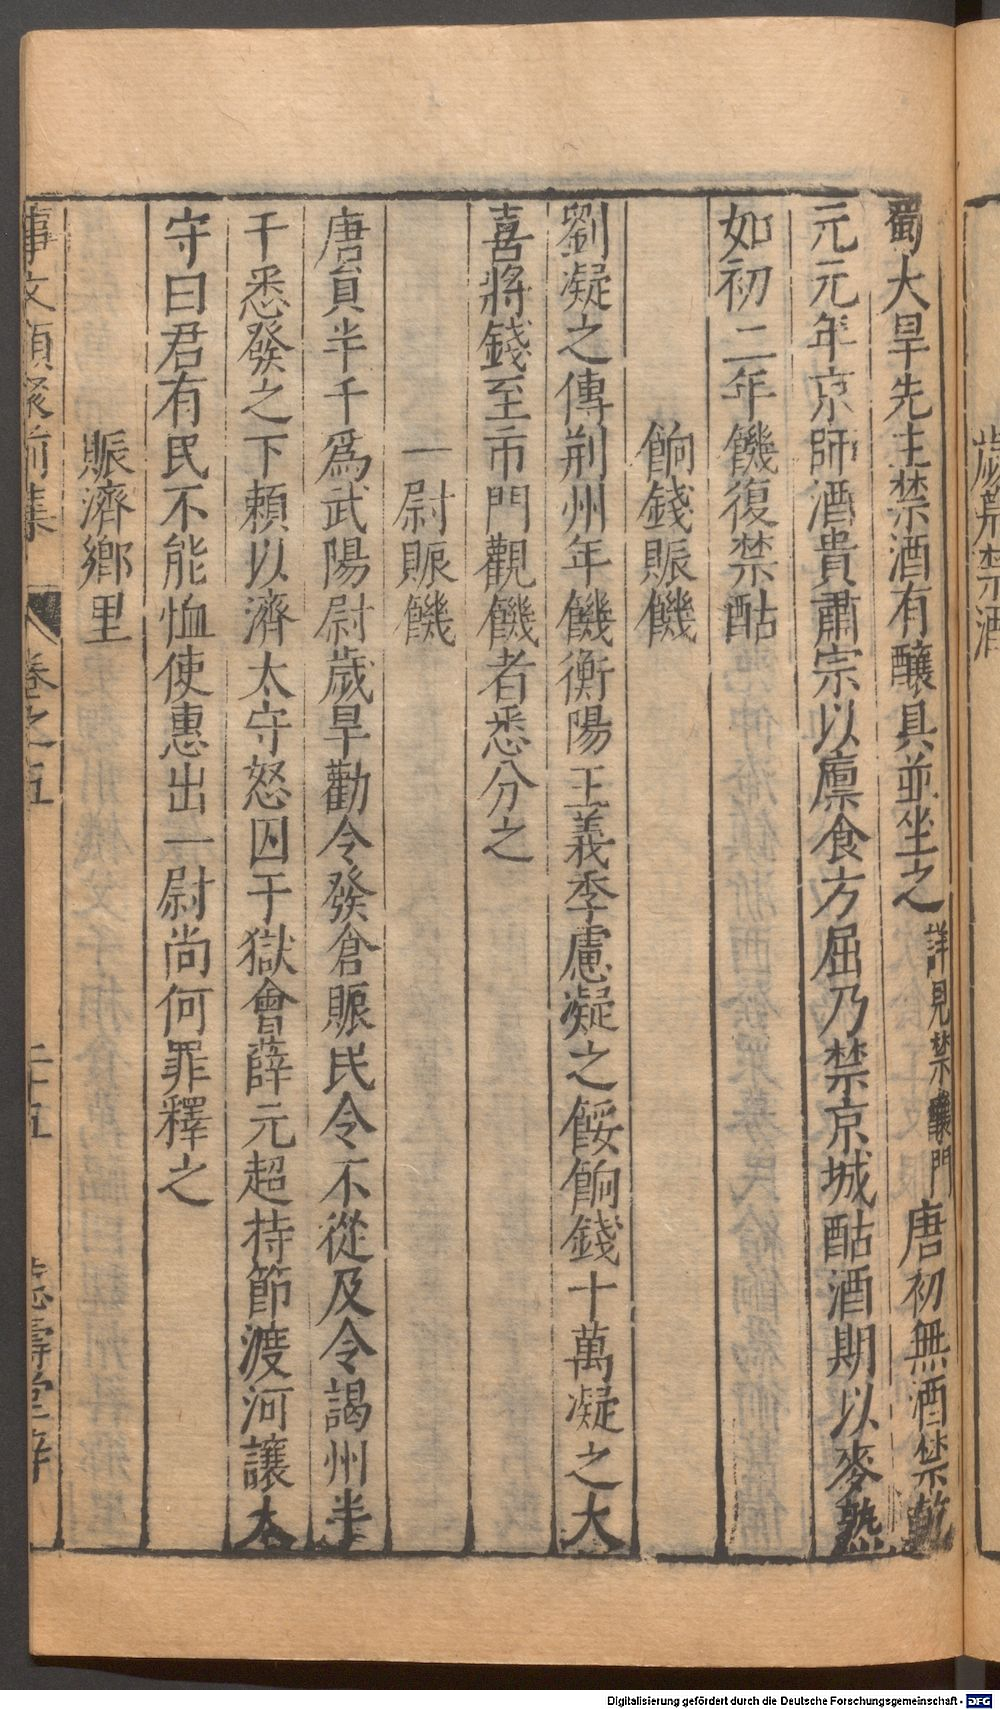 歲荒禁酒
蜀大旱先主禁酒有釀具並坐之詳見禁釀門唐初無酒禁乾
元元年京師酒貴肅宗以廩食方屈乃禁京城酤酒期以麥熟
如初二年饑復禁酤
餉錢賑饑
劉凝之傳荆州年饑衡陽王義季慮凝之餒餉錢十萬凝之大
喜將錢至市門觀饑者悉分之
一尉賑饑
唐員半千爲武陽尉歲旱勸令發倉賑民令不從及令謁州半
千悉發之下頼以濟太守怒囚于獄會薛元超持節渡河讓太
守曰君有民不能恤使惠出一尉尚何罪釋之
賑濟鄉里
事文類聚前集 卷之五 二十五
Digitalisierung gefördert durch die Deutsche Forschungsgemeinschaft - DFG